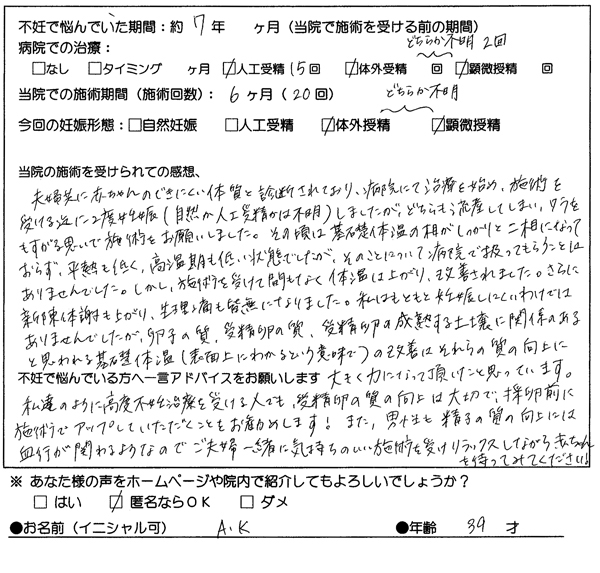 不妊で悩んでいた期間：約 7 年　　ヶ月（当院で施術を受ける前の期間）
病院での治療：　どちらか不明 2回
□なし　□タイミング　　ヶ月　☑人工受精 15回　☑体外受精　回　☑顕微授精　回
当院での施術期間（施術回数）：　6 ヶ月（20回）　どちらか不明
今回の妊娠形態：□自然妊娠　□人工受精　☑体外授精　☑顕微授精
当院の施術を受けられての感想、
夫婦共に赤ちゃんのできにくい体質と診断されており、病院にて治療を始め、施術を
受ける迄に2度妊娠（自然か人工受精かは不明）しましたが、どちらも流産してしまい、ワラを
もすがる思いで施術をお願いしました。その頃は基礎体温の相がしっかりと二相になって
おらず、平熱も低く、高温期も低い状態でしたが、そのことについて病院で扱ってもらうことは
ありませんでした。しかし、施術を受けて間もなく体温は上がり、改善されました。さらに
新陳代謝も上がり、生理痛も皆無になりました。私はもともと妊娠しにくいわけでは
ありませんでしたが、卵子の質、受精卵の質、受精卵の成熟する土壌に関係のある
と思われる基礎体温（表面上にわかるという意味で）の改善はそれらの質の向上に
不妊で悩んでいる方へ一言アドバイスをお願いします　大きく力になって頂いたと思っています。
私達のように高度不妊治療を受ける人でも、受精卵の質の向上は大切で、採卵前に
施術でアップしていただくこともお勧めします！また、男性も精子の質の向上には
血行が関わるようなのでご夫婦一緒に気持ちのいい施術を受けリラックスしながら赤ちゃん
を待ってみてください！
※ あなた様の声をホームページや院内で紹介してもよろしいでしょうか？
□ はい　☑ 匿名ならＯＫ　□ ダメ
●お名前（イニシャル可）　A.K　●年齢　39 才